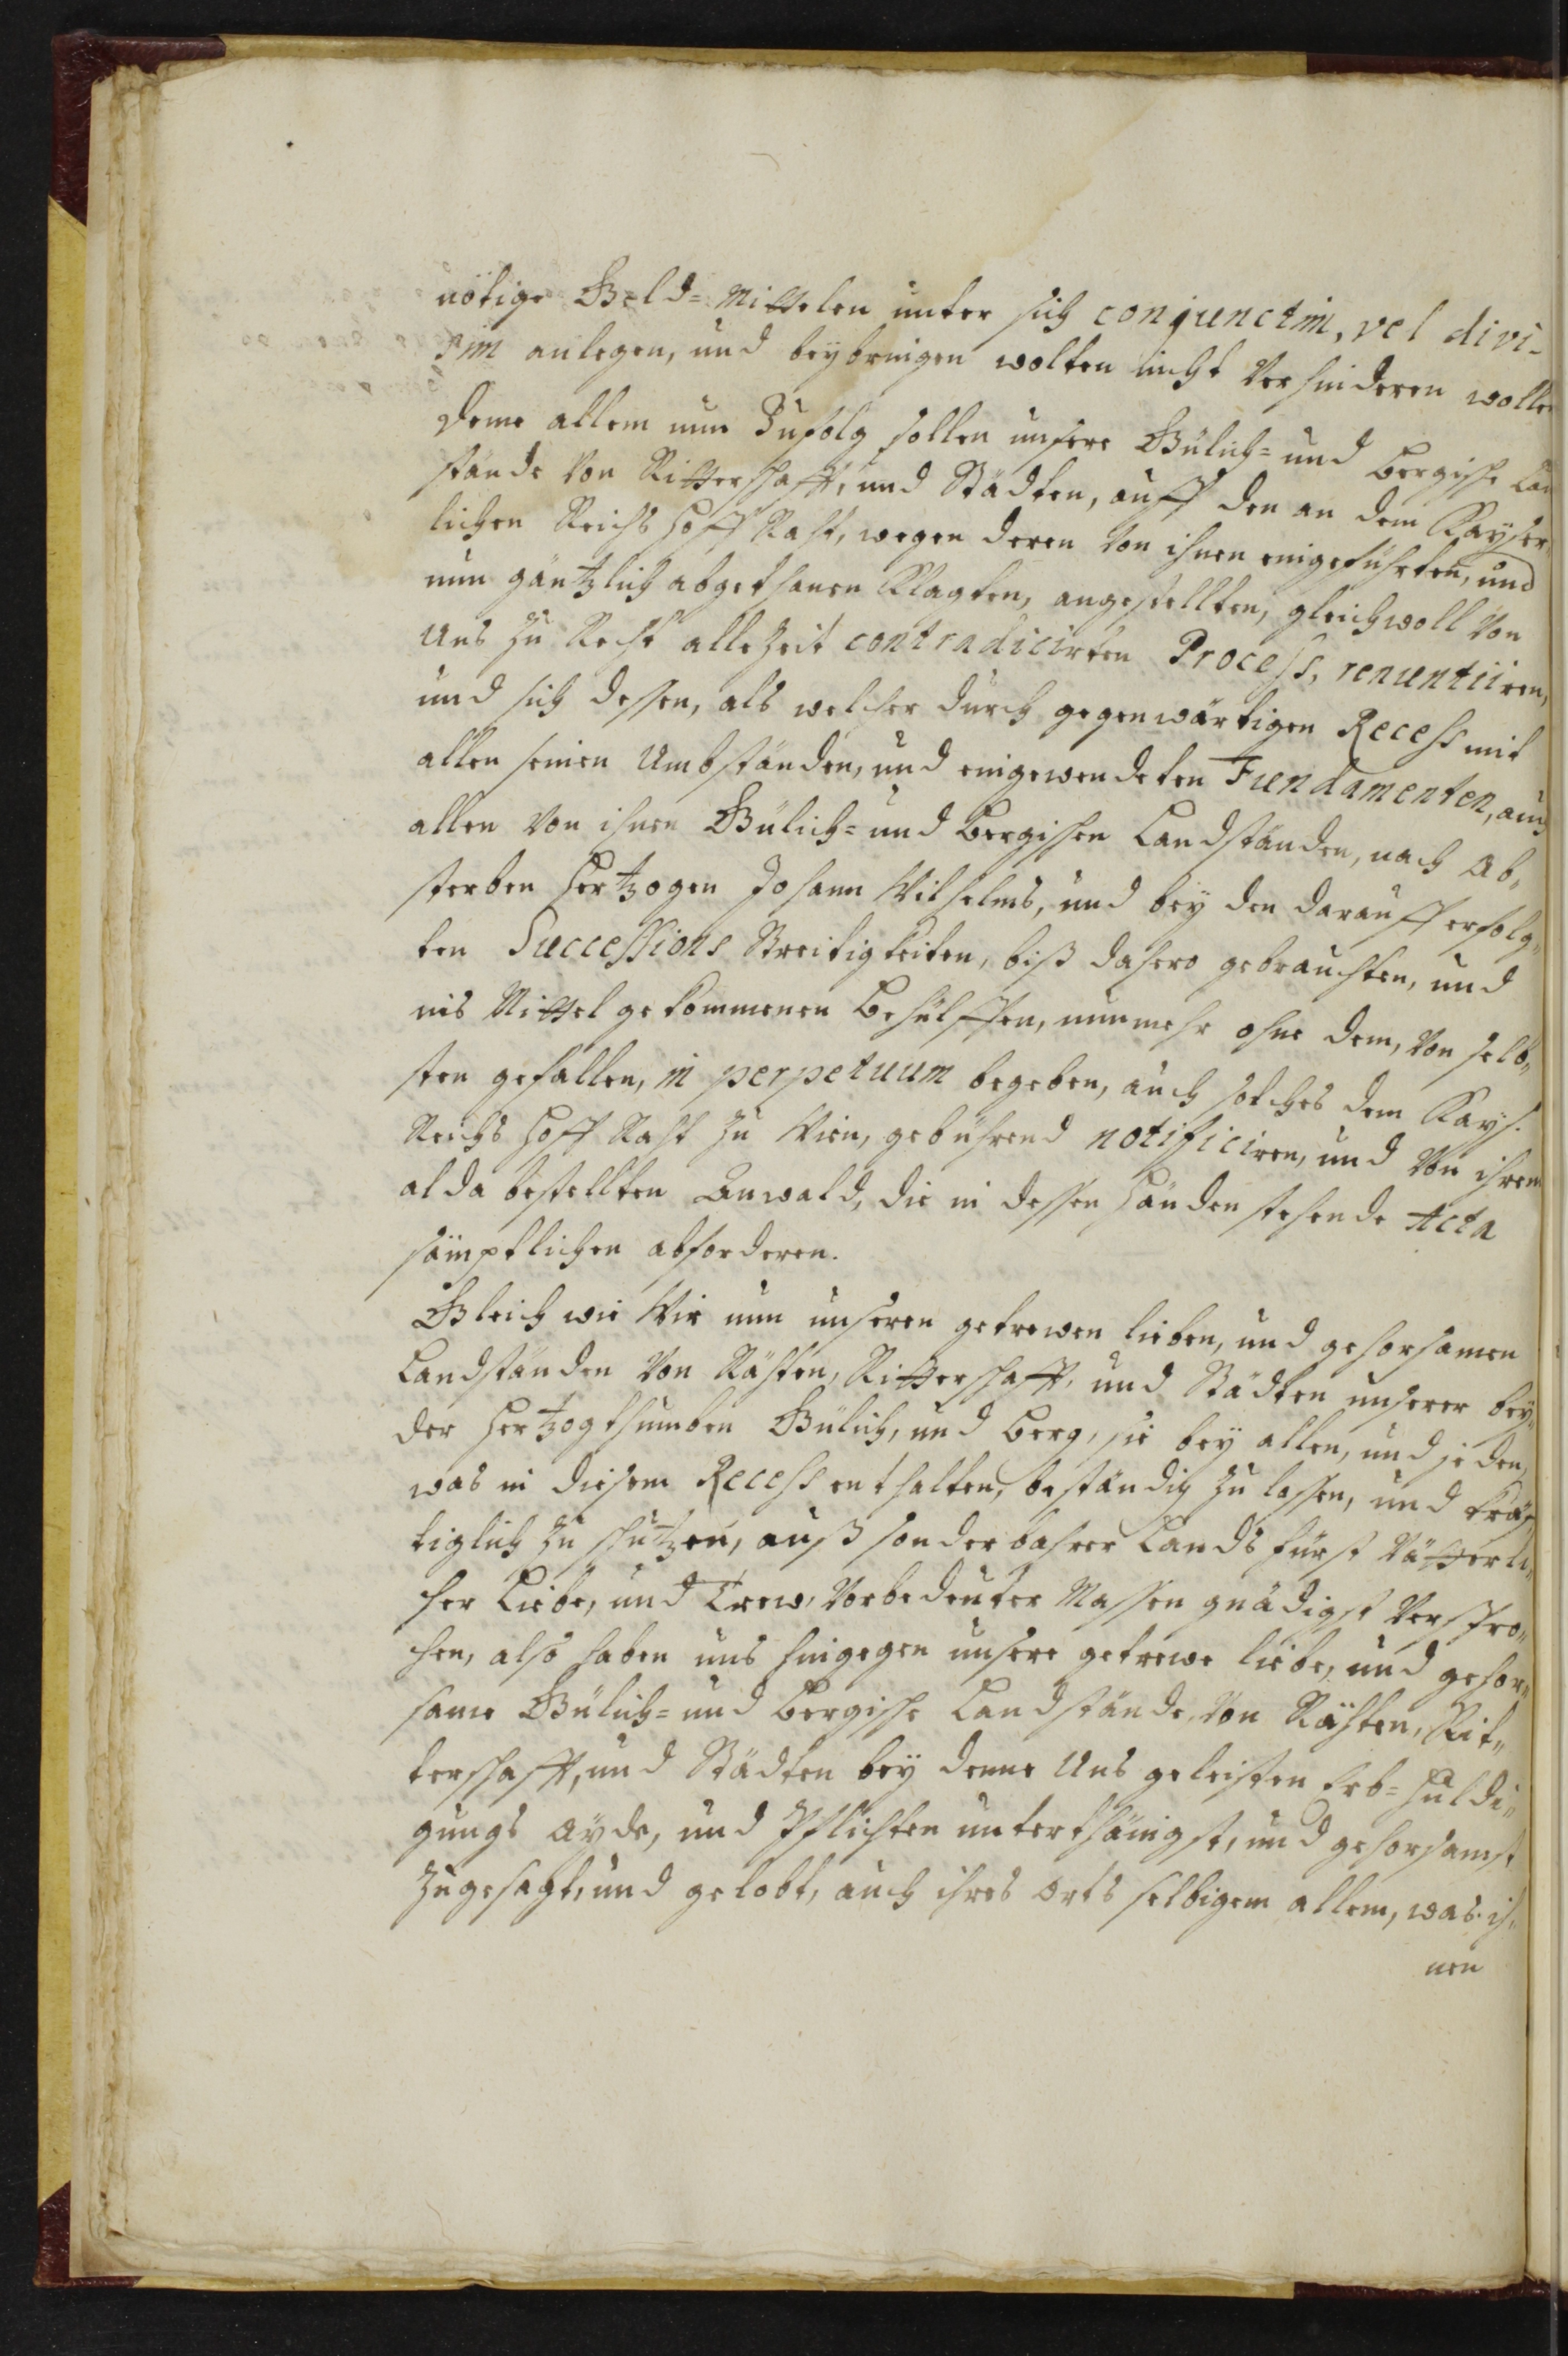 nötige Geld-Mittelen unter sich conjunctim, vel divi-
sim anlegen, und beybringen wolten nicht Verhinderen wolle
Deme allem nun Zufolg sollen unsere Gülich- und Bergische Lan
stände Von Ritterschafft, und Städten, auff den an dem Kayser
lichen Reichs Hoff Raht, wegen deren Von ihnen eingeführten, und
nun gäntzlich abgethanen Klagten, angestellten, gleichwoll Von
Uns zu Recht allezeit contradicirten Process, renuntiiren,
und sich dessen, als welcher durch gegenwärtigen Recess mit
allen seinen Umbständen, und eingewendeten Fundamenten, auch
allen Von ihnen Gülich- und Bergischen Landständen, nach Ab„
sterben Hertzogen Johann Wilhelms, und bey den darauff erfolg„
ten Successions Streitigkeiten, biß dahero gebrauchten, und
ins Mittel gekommenen Behülffen, nunmehr ohne dem, Von selb„
sten gefallen, in perpetuum begeben, auch solches dem Kays.
Reichs Hoff Raht zu Wien, gebührend notificiren, und Von ihrem
alda bestellten Anwald, die in dessen Händen stehende Acta
sämptlichen abforderen.
Gleich wie Wir nun unseren getrewen lieben, und gehorsamen
Landständen Von Rähten, Ritterschafft, und Städten unserer bey„
der Hertzogthumben Gülich, und Berg, sie bey allen, und jeden,
was in diesem Recess enthalten, beständig zu lassen, und kräf
tiglich zu schutzen, auß sonderbahrer Lands fürst Vätterli„
cher Liebe, und Trew, Vorbedeuter Massen gnädigst Verspro„
chen, also haben uns hingegen unsere getrewe liebe, und gehor„
same Gülich- und Bergische Landstände, Von Rähten, Rit„
terschafft, und Städten bey denne Uns geleisten Erb-Huldi„
gungs Ayde, und Pflichten unterthänigst, und gehorsamst
zugesagt, und gelobt, auch ihres Orts selbigem allem, was ih„
nen